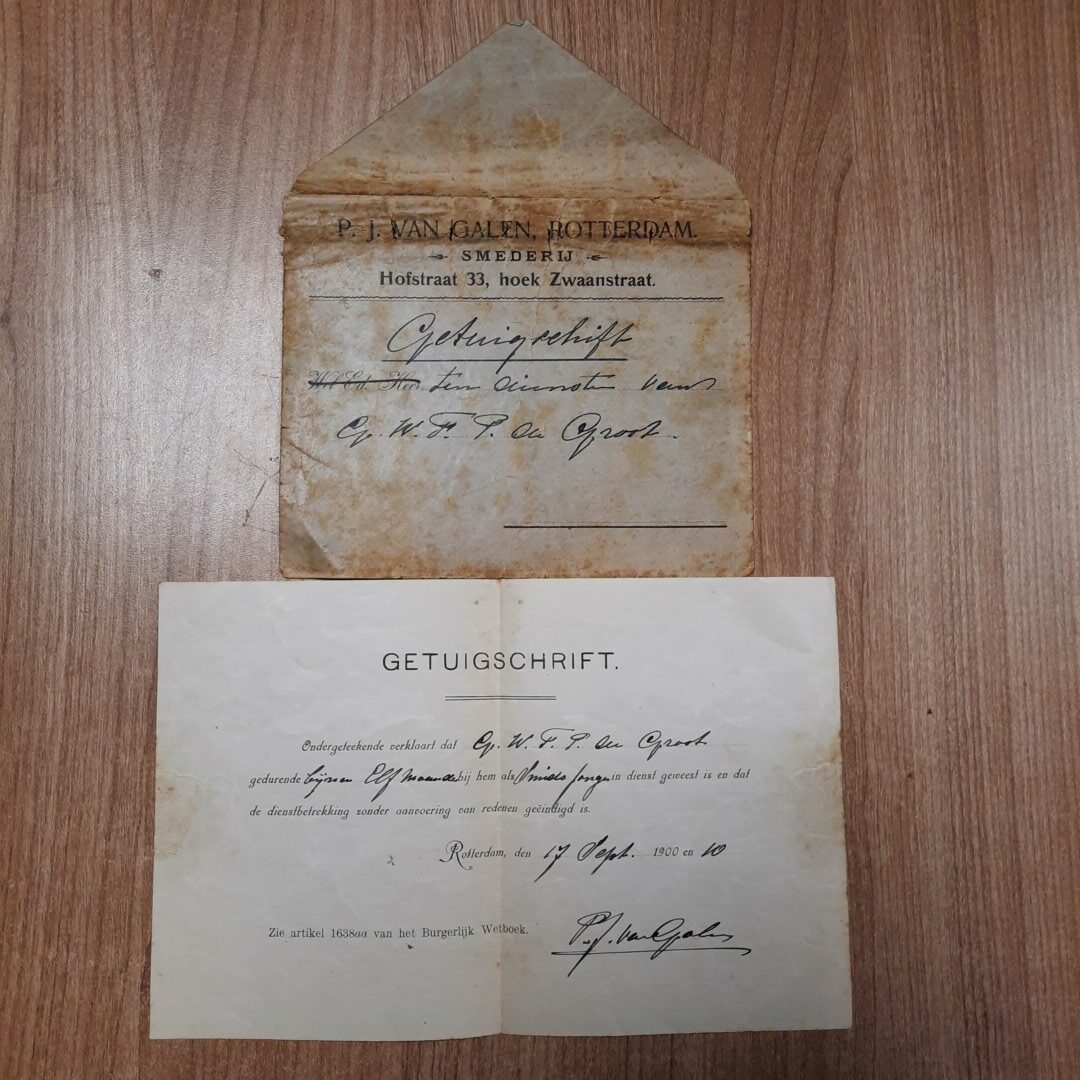 P. J. VAN GALEN, ROTTERDAM.
SMEDERIJ
Hofstraat 33, hoek Zwaanstraat.
Getuigschift
Wel Ed. Heer ten diensten van
G. W. F. P. de Groot.
GETUIGSCHRIFT.
Ondergeteekende verklaart dat G. W. F. P. de Groot
gedurende bijna Elf maanden bij hem als Smids jongen in dienst geweest is en dat
de dienstbetrekking zonder aanvoering van redenen geëindigd is.
Rotterdam, den 17 Sept. 1900 en 10
Zie artikel 1638aa van het Burgerlijk Wetboek.
P. J. van Galen